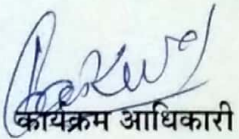 कार्यक्रम आधिकारी